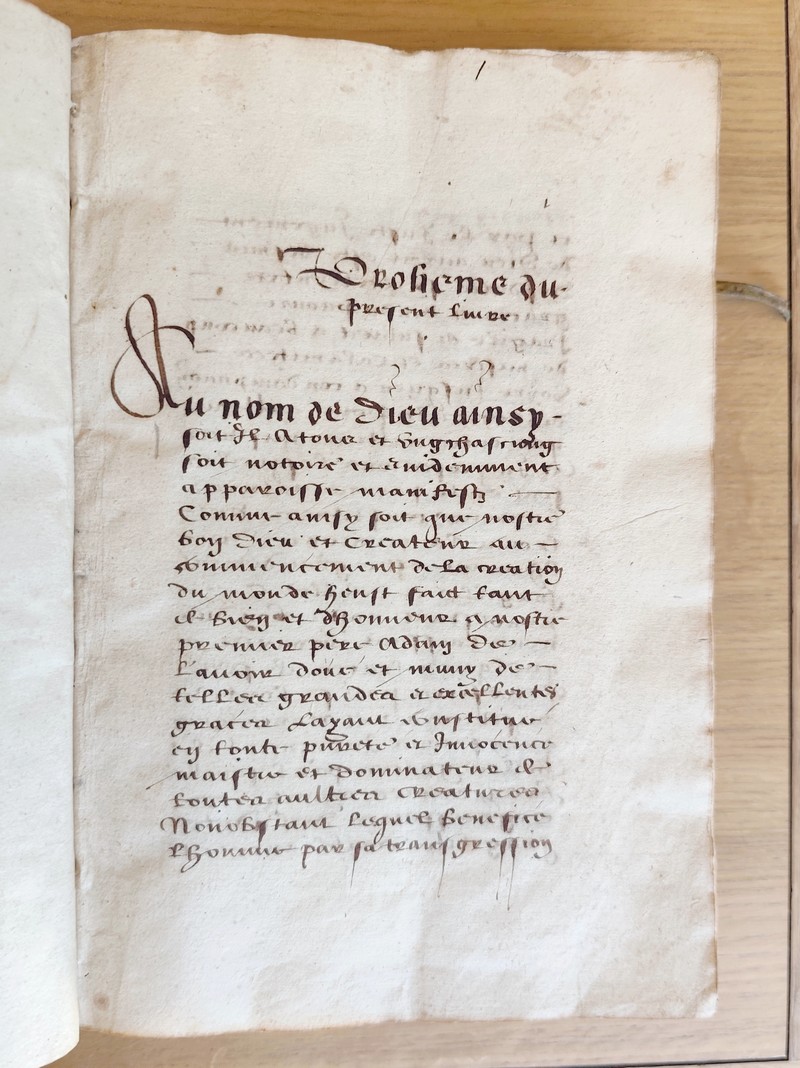 Proheme du
present livre
Au nom de Dieu ainsy
soit Il Atous et Ungchascung
soit notoire et evidemment
apparoisse manifest
Comme ainsy soit que nostre
bon Dieu et Createur au
commencement dela creation
du monde heust faict tant
de bien et dhonneur a nostre
premier pere Adam de
lavoir doué et muny de
telles grandes et excellentes
graces Layant constitué
en toute pureté et Innocence
maistre et dominateur de
toutes aultres creatures
Nonobstant lequel benefice
lhomme par sa transgression